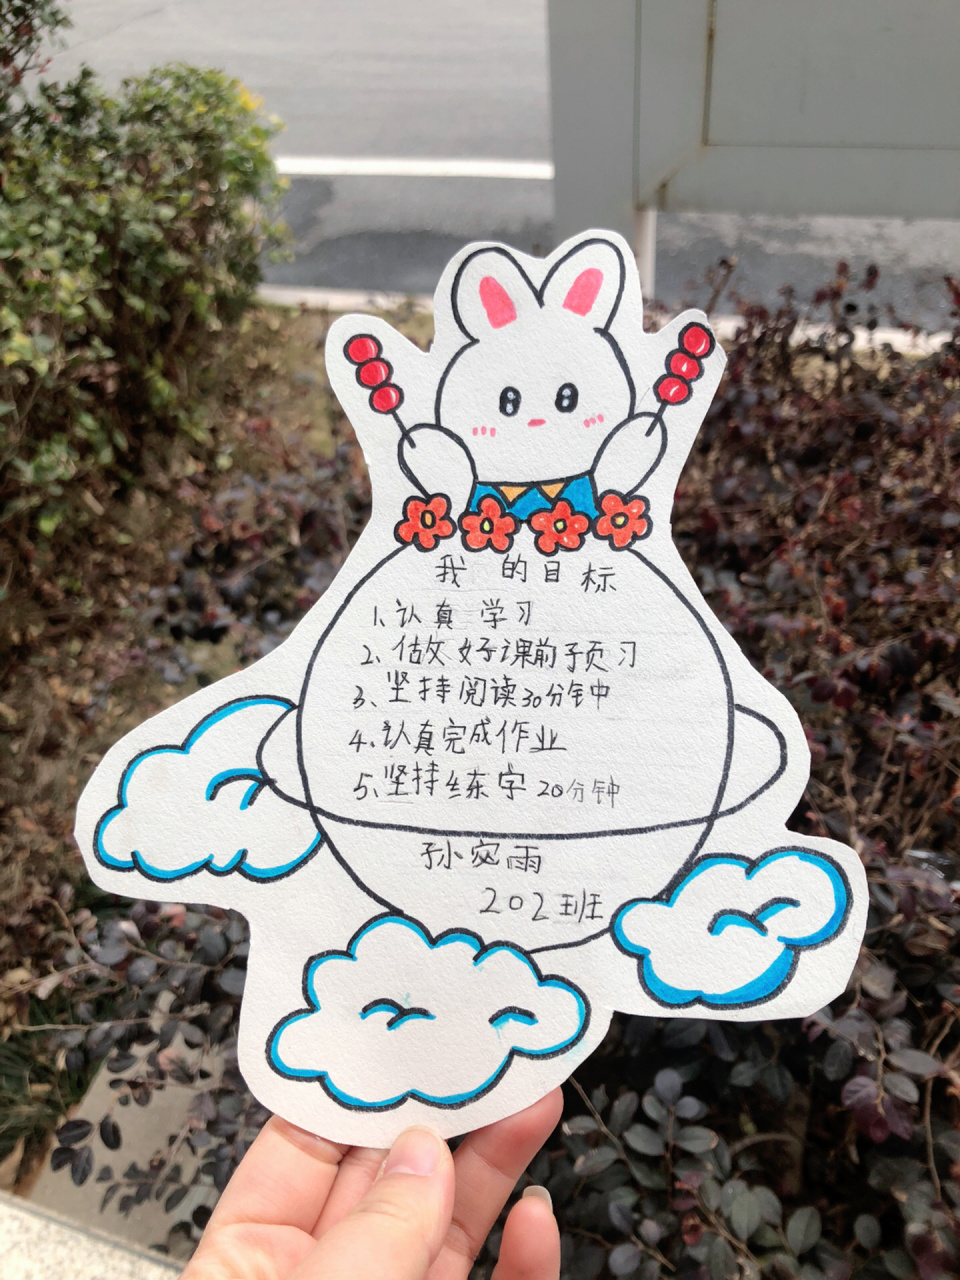 我的目标
1、认真学习
2、做好课前预习
3、坚持阅读30分钟
4、认真完成作业
5、坚持练字20分钟
孙宛雨
202班